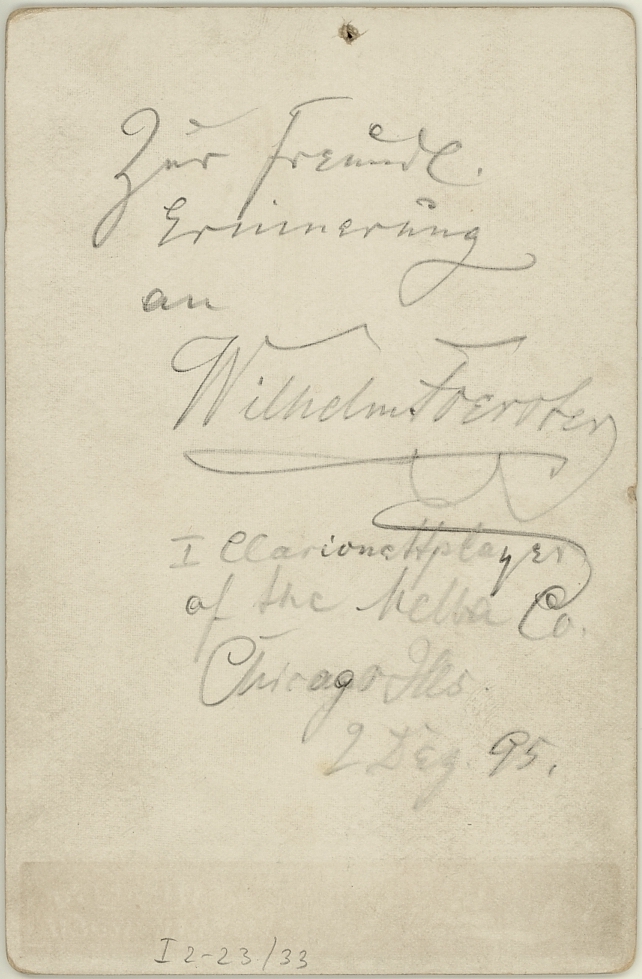 Zur Freundl.
Erinnerung
an
Wilhelm Foerster
I Clarionettplayer
of the Melba Co.
Chicago Ills
2 Dez. 95.
I 2-23/33